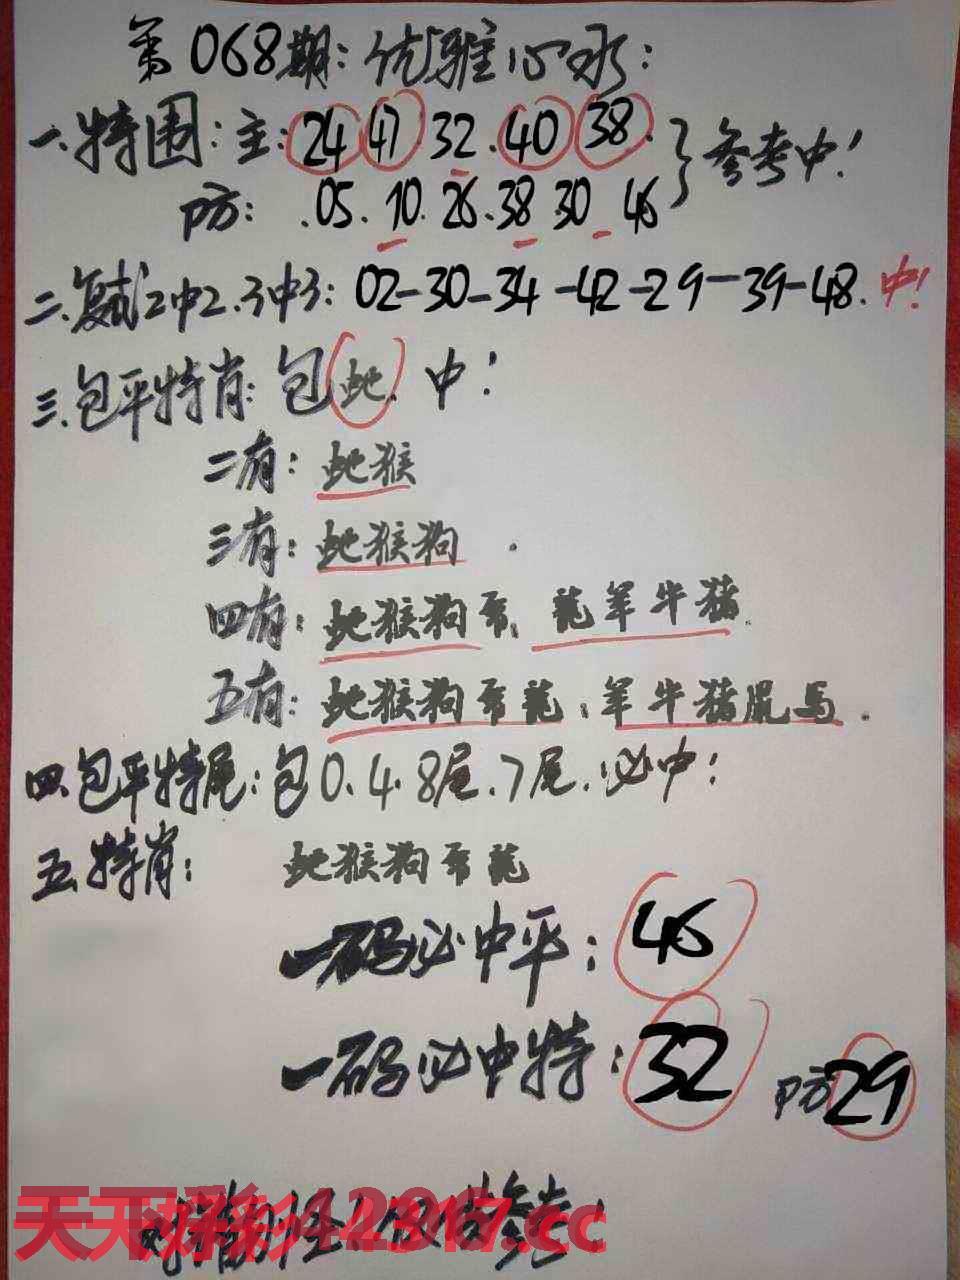 第068期:优雅心水:
一.特围:主:24 47 32.40 38.
参考中!
防:.05.10.26.38 30 46
二.复式2中2.3中3:02-30-34-42-29-39-48.中!
三.包平特肖:包蛇.中!
二有:蛇猴
三有:蛇猴狗.
四有:蛇猴狗 龍羊牛猪.
五有:蛇猴狗 龍:羊牛猪鼠马.
四.包平特尾:包0.4.8尾.7尾.必中:
五.特肖:蛇猴狗 龍
一码必中平:46
一码必中特:32 防29
天天 彩 .cc
参